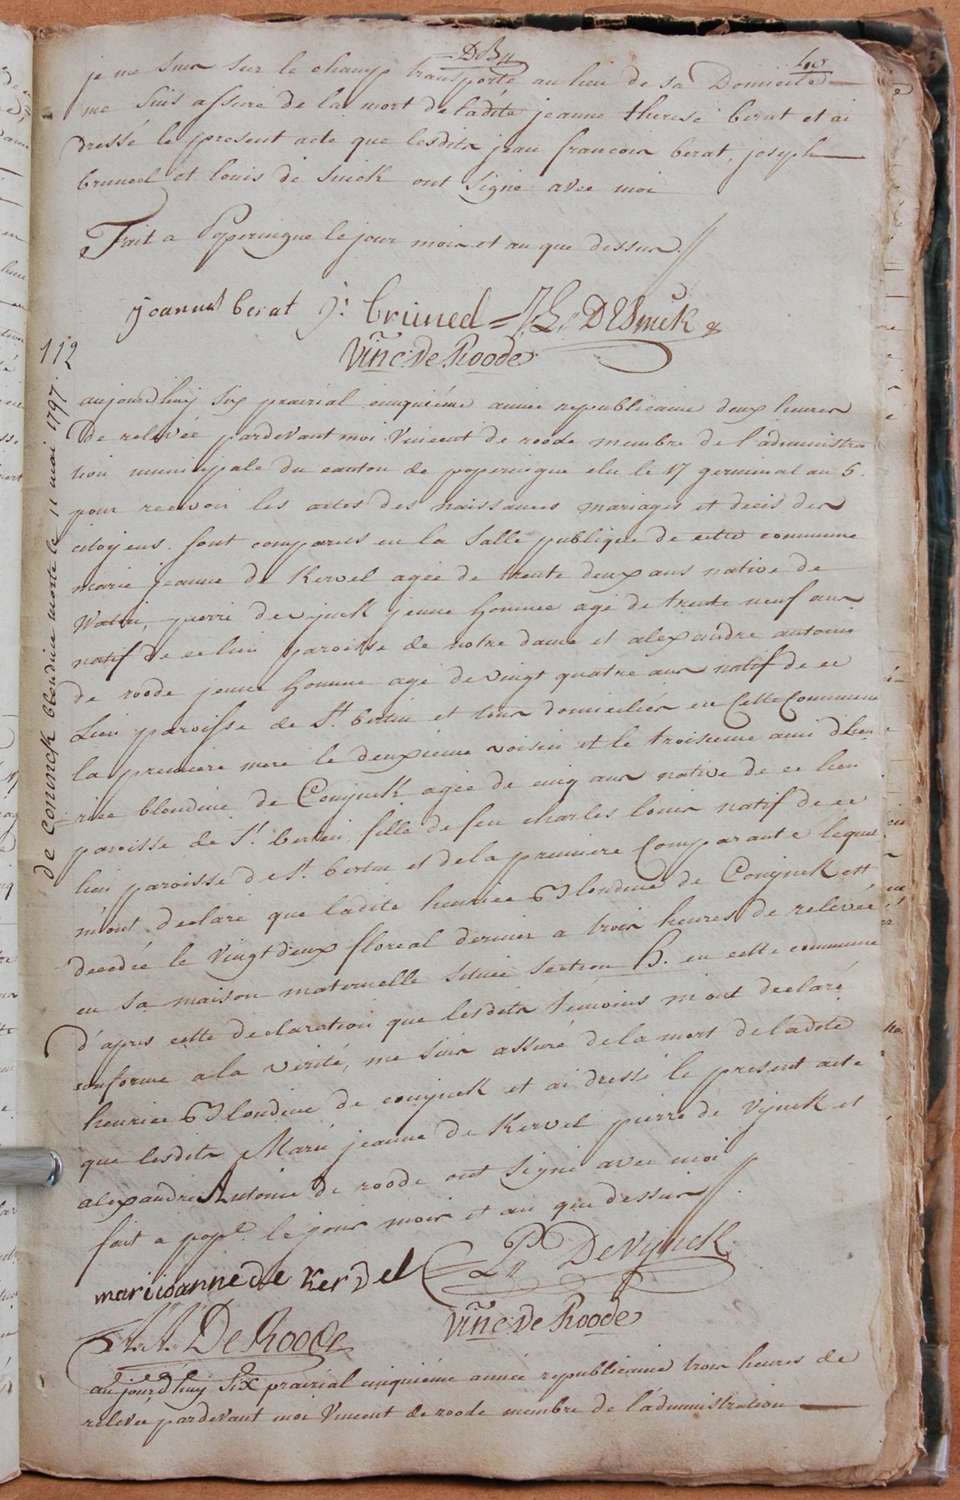 DBy
je me suis sur le champ transporté au lieu de sa Domicile
me suis assuré de la mort de ladite jeanne therese berat et ai
dressé le present acte que lesdits jean francois berat, joseph
bruneel et louis de smick ont signé avec moi
Fait a Poperingue le jour mois et an que dessus //
joannes berat j: bruneel = DESmick
Vinc: De Roode
112
de coninck blondine morte le 11 mai 1797.
aujourdhuy six prairial cinquiéme année republicaine deux heures
de relevée pardevant moi Vincent de roode membre de l'administra
tion municipale du canton de poperingue elu le 17 germinal an 5.
pour recevoir les actes des naissances mariages et decès des
citoyens. sont comparus en la salle publique de cette commune
marie jeanne de Kervel agée de trente deux ans native de
Watou, pierre devynck jeune homme agé de trente neuf ans
natif de ce lieu paroisse de notre dame et alexandre antoine
de roode jeune homme agé de vingt quatre ans natif de ce
Lieu paroisse de St bertin et tous domiciliés en cette Commune
la premiere mere le deuxieme voisin et le troisieme ami d'hen
riee blondine de Conynck agée de cinq ans native de ce lieu
paroisse de St bertin fille de feu charles louis natif de ce
lieu paroisse de St. bertin et de la premiere Comparante lesquels
m'ont declaré que ladite henriee Blondine de Conynck est
decedée le vingt deux floreal dernier a trois heures de relevée
en sa maison maternelle située section B. en cette commune
d'apres cette declaration que lesdits temoins m'ont declaré
conforme a la verité, me suis assuré de la mort de ladite
henriee Blondine de conynck et ai dressé le present acte
que lesdits Marie jeanne de Kervel pierre de Vynck et
alexandre Antoine de roode ont signé avec moi
fait a pop.e le jour mois et an que dessus //
marie joanne de kervel P DeVynck
A. A. De Roode Vinc: De Roode
aujourd'huy Six prairial cinquiéme année republicaine trois heures de
relevée pardevant moi Vincent de roode membre de l'administration